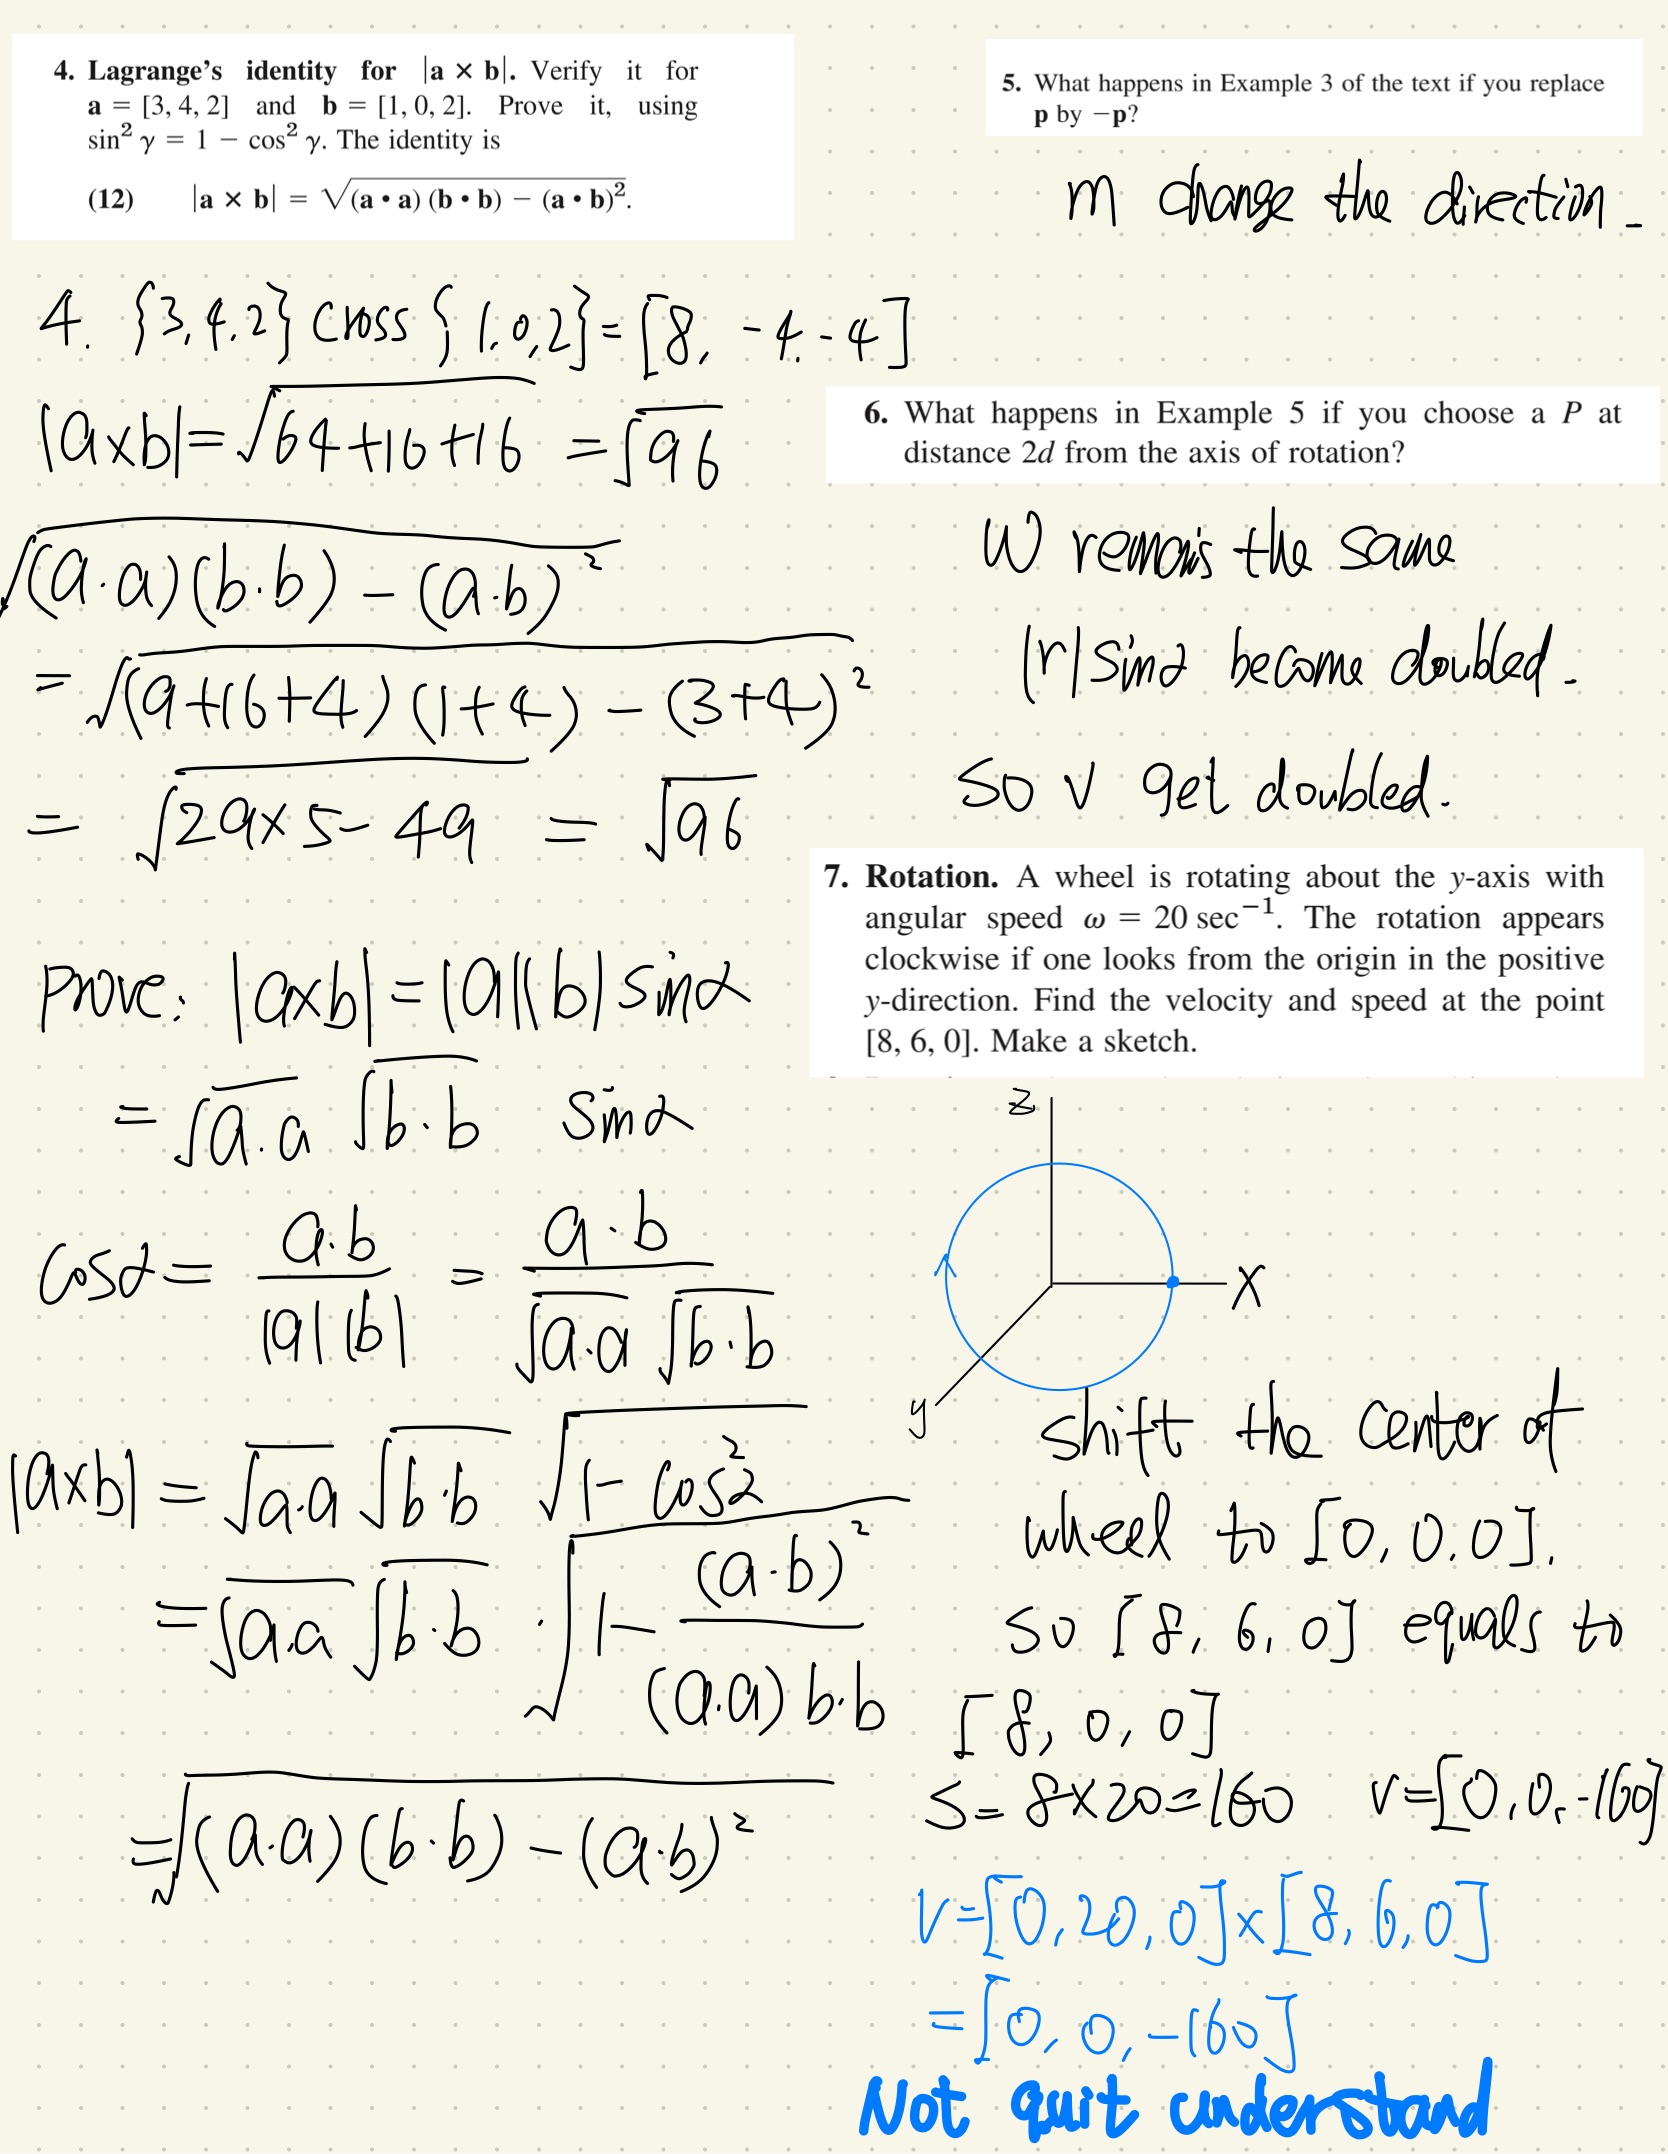 4. Lagrange's identity for |a × b|. Verify it for
a = [3, 4, 2] and b = [1, 0, 2]. Prove it, using
sin² γ = 1 − cos² γ. The identity is
(12) |a × b| = √(a • a) (b • b) − (a • b)².
4. {3,4,2} cross {1,0,2} = [8, -4, -4]
|a×b| = √64+16+16 = √96
√(a·a)(b·b) − (a·b)²
= √(9+16+4)(1+4) − (3+4)²
= √29×5−49 = √96
prove: |a×b| = |a||b| sinα
= √a·a √b·b sinα
cosα = a·b / |a||b| = a·b / √a·a √b·b
|a×b| = √a·a √b·b √1−cos²α
= √a·a √b·b · √1− (a·b)² / (a·a) b·b
= √(a·a)(b·b) − (a·b)²
5. What happens in Example 3 of the text if you replace
p by −p?
m change the direction.
6. What happens in Example 5 if you choose a P at
distance 2d from the axis of rotation?
W remais the same
|r|sinα become doubled.
so v get doubled.
7. Rotation. A wheel is rotating about the y-axis with
angular speed ω = 20 sec⁻¹. The rotation appears
clockwise if one looks from the origin in the positive
y-direction. Find the velocity and speed at the point
[8, 6, 0]. Make a sketch.
z
x
y
shift the center of
wheel to [0, 0, 0].
so [8, 6, 0] equals to
[8, 0, 0]
s = 8×20=160 v=[0,0,-160]
V=[0,20,0]×[8,6,0]
=[0, 0, -160]
Not quit understand